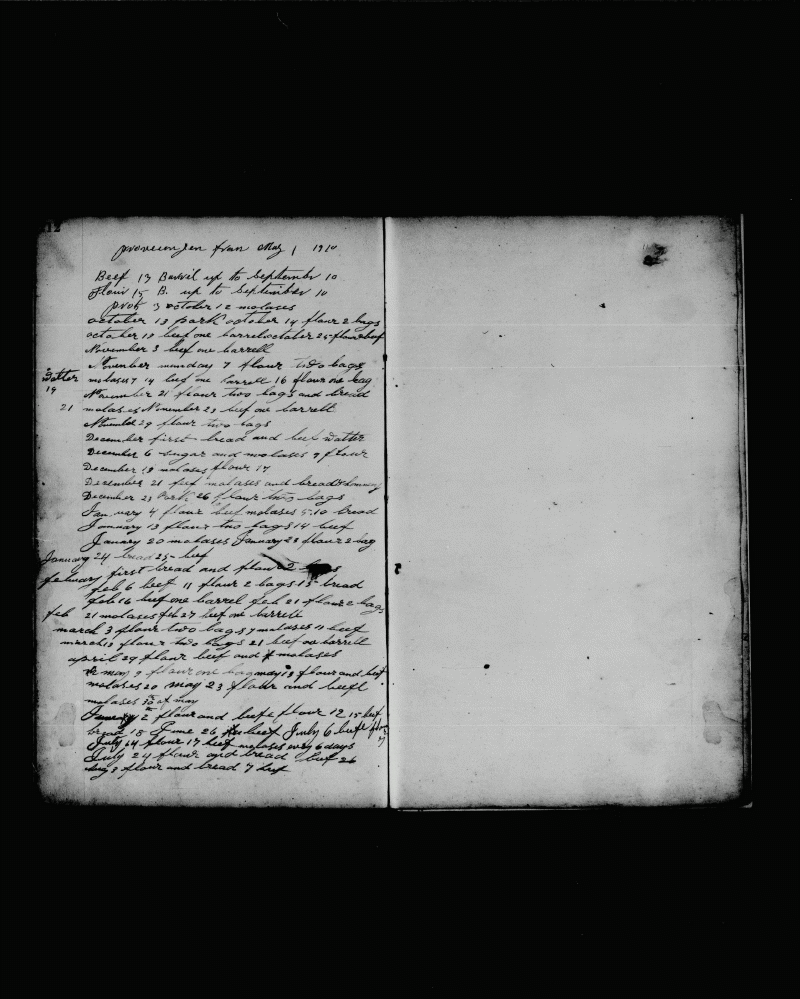 12
from May 1 1910
Beef 13 Barril up to September 10
Flour 15 B. up to September 10
3 october 12 molases
october 13 pork october 14 flour 2 bags
octaber 19 beef one barrel octaber 25 flour beef
November 3 beef one barrell
November munday 7 flour two bags
watter molases 7 14 beef one barrell 16 flour one bag
19 November 21 flour two bags and bread
21 molases November 23 beef one barrell
29 flour two bags
December first bread and beef watter
December 6 sugar and molases 9 flour
December 19 molases flour 17
December 21 beef molases and bread
December 23 Pork 26 flour two bags
January 4 flour beef molases 5 10 bread
January 13 flour two bags 14 beef
January 20 molases January 23 flour 2 bag
January 24 bread 25 beef
february first bread and flour 2 bags
feb 6 beef 11 flour 2 bags 13 bread
feb 16 beef one barrel feb 21 flour 2 bags
feb 21 molases feb 27 beef one barrell
march 3 flour two bags 7 molases 11 beef
march 13 flour two bags 21 beef one barrell
april 29 flour beef and molases
may 9 flour one bag may 13 flour and beef
molases 20 may 23 flour and beefl
molases 30 of may
2 flour and beef flour 12 15 beef
bread 18 June 26 beef July 6 beef flour
July 14 flour 17 beef molases every 6 days
July 24 flour and bread beef 26
Aug 3 flour and bread 7 beef